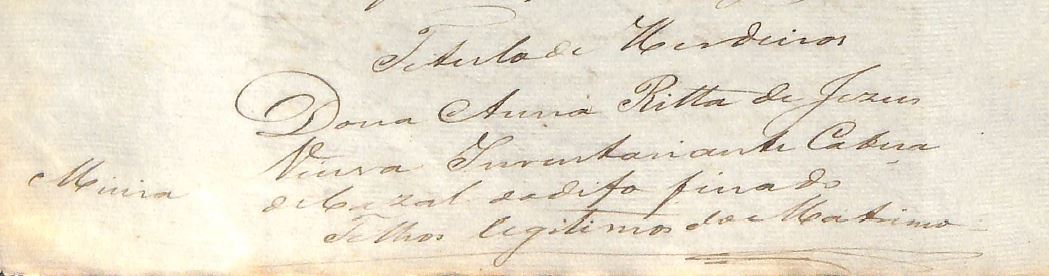 Titulo de Herdeiros
Dona Anna Ritta de Jezus
Viuva Inventariante Cabeça
de Cazal do dito finado
Filhos legitimos do Matrimo-